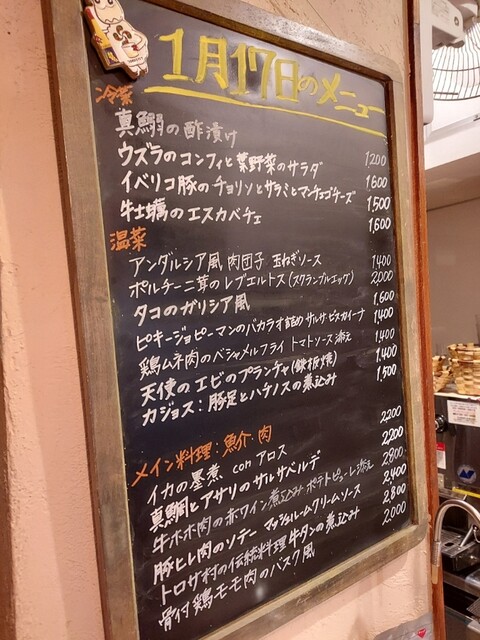 1月17日のメニュー
冷菜
真鰯の酢漬け 1200
ウズラのコンフィと葉野菜のサラダ 1.600
イベリコ豚のチョリソとサラミとマンチェゴチーズ 1.500
牡蠣のエスカベチェ 1.600
温菜
アンダルシア風 肉団子 玉ねぎソース 1.400
ポルチーニ茸のレブエルトス(スクランブルエッグ) 2,000
タコのガリシア風 1.600
ピキージョピーマンのバカラオ詰め サルサ・ビスカイーナ 1400
鶏ムネ肉のベシャメルフライ トマトソース添え 1.400
天使のエビのプランチャ(鉄板焼) 1.400
カジョス:豚足とハチノスの煮込み 1,500
メイン料理:魚介・肉
イカの墨煮 con アロス 2,200
真鯛とアサリのサルサベルデ 2,200
牛ホホ肉の赤ワイン煮込み ポテトピューレ添え 2,800
豚ヒレ肉のソテー マッシュルームクリームソース 2,400
トロサ村の伝統料理 牛タンの煮込み 2,800
骨付鶏モモ肉のバスク風 2.000